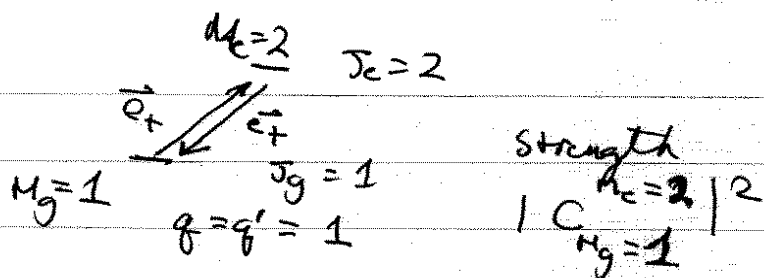 M_e=2
J_e=2
e⃗_+
e⃗_+
M_g=1
J_g=1
q=q'=1
Strength
|C_{M_g=1}^{M_e=2}|^2